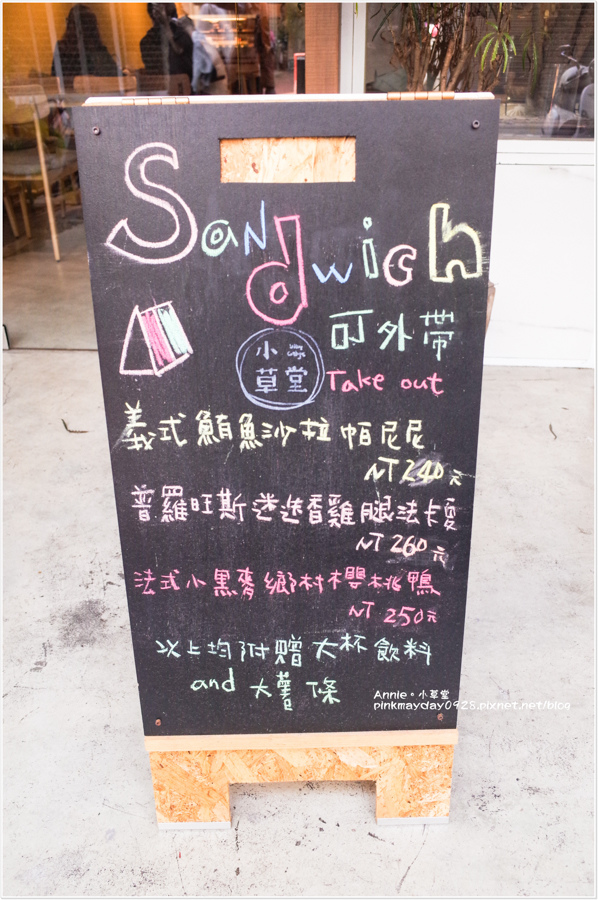 Sandwich
可外帶
小草堂
Take out
義式鮪魚沙拉帕尼尼
NT 240元
普羅旺斯迷迭香雞腿法卡夏
NT 260元
法式小黑麥鄉村櫻桃鴨
NT 250元
以上均附贈大杯飲料
and 大薯條
Annie。小草堂
pinkmayday0928.pixnet.net/blog